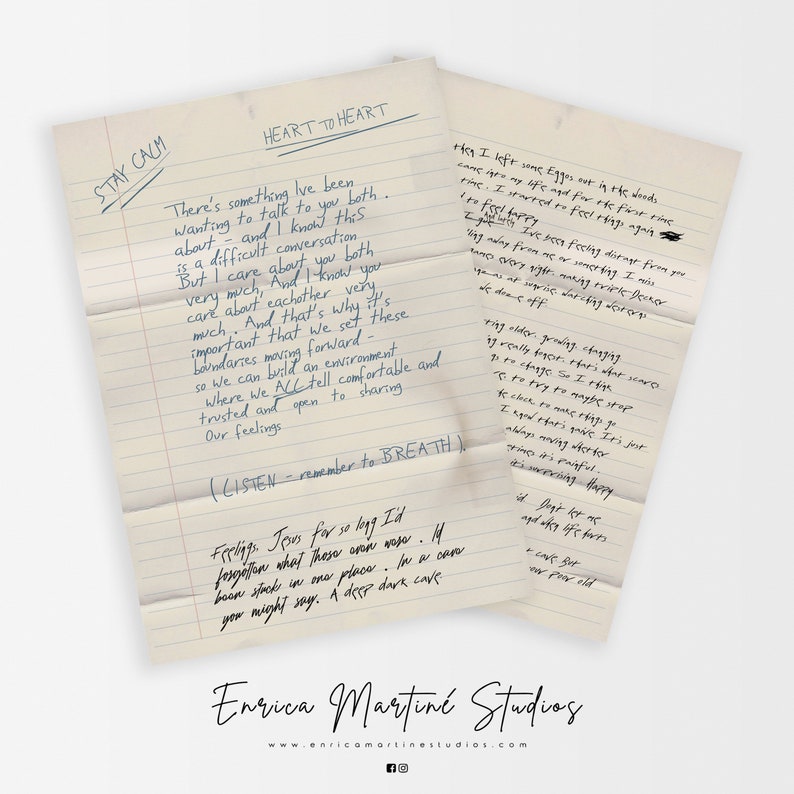 STAY CALM
HEART TO HEART
There's something Ive been
wanting to talk to you both .
about - and I know thiS
is a difficult conversation
But I care about you both
very much, And I know you
care about eachother very
much . And that's why it's
important that we set these
boundaries moving forward -
so we can build an environment
where we ALL tell comfortable and
trusted and open to sharing
Our feelings
(LISTEN - remember to BREATH).
Feelings, Jesus for so long I'd
forgotten what those even were . I'd
been stuck in one place . In a cave
you might say. A deep dark cave.
then I left some Eggos out in the woods
came into my life and for the first time
time. I started to feel things again
d to feel happy
And lately
I've been feeling distant from you
ling away from me or something I miss
games every night, making triple-Decker
at sunrise, watching westerns
we doze off.
ting older, growing, changing
ng really honest, that's what scares
gs to change. So I think
re to try to maybe stop
k clock, to make things go
I know that's naive. It's just
always moving whether
etimes it's painful.
it's surprising. Happy
id. Don't let me
and when life hurts
t cave. But
your poor old
Enrica Martiné Studios
www.enricamartinestudios.com